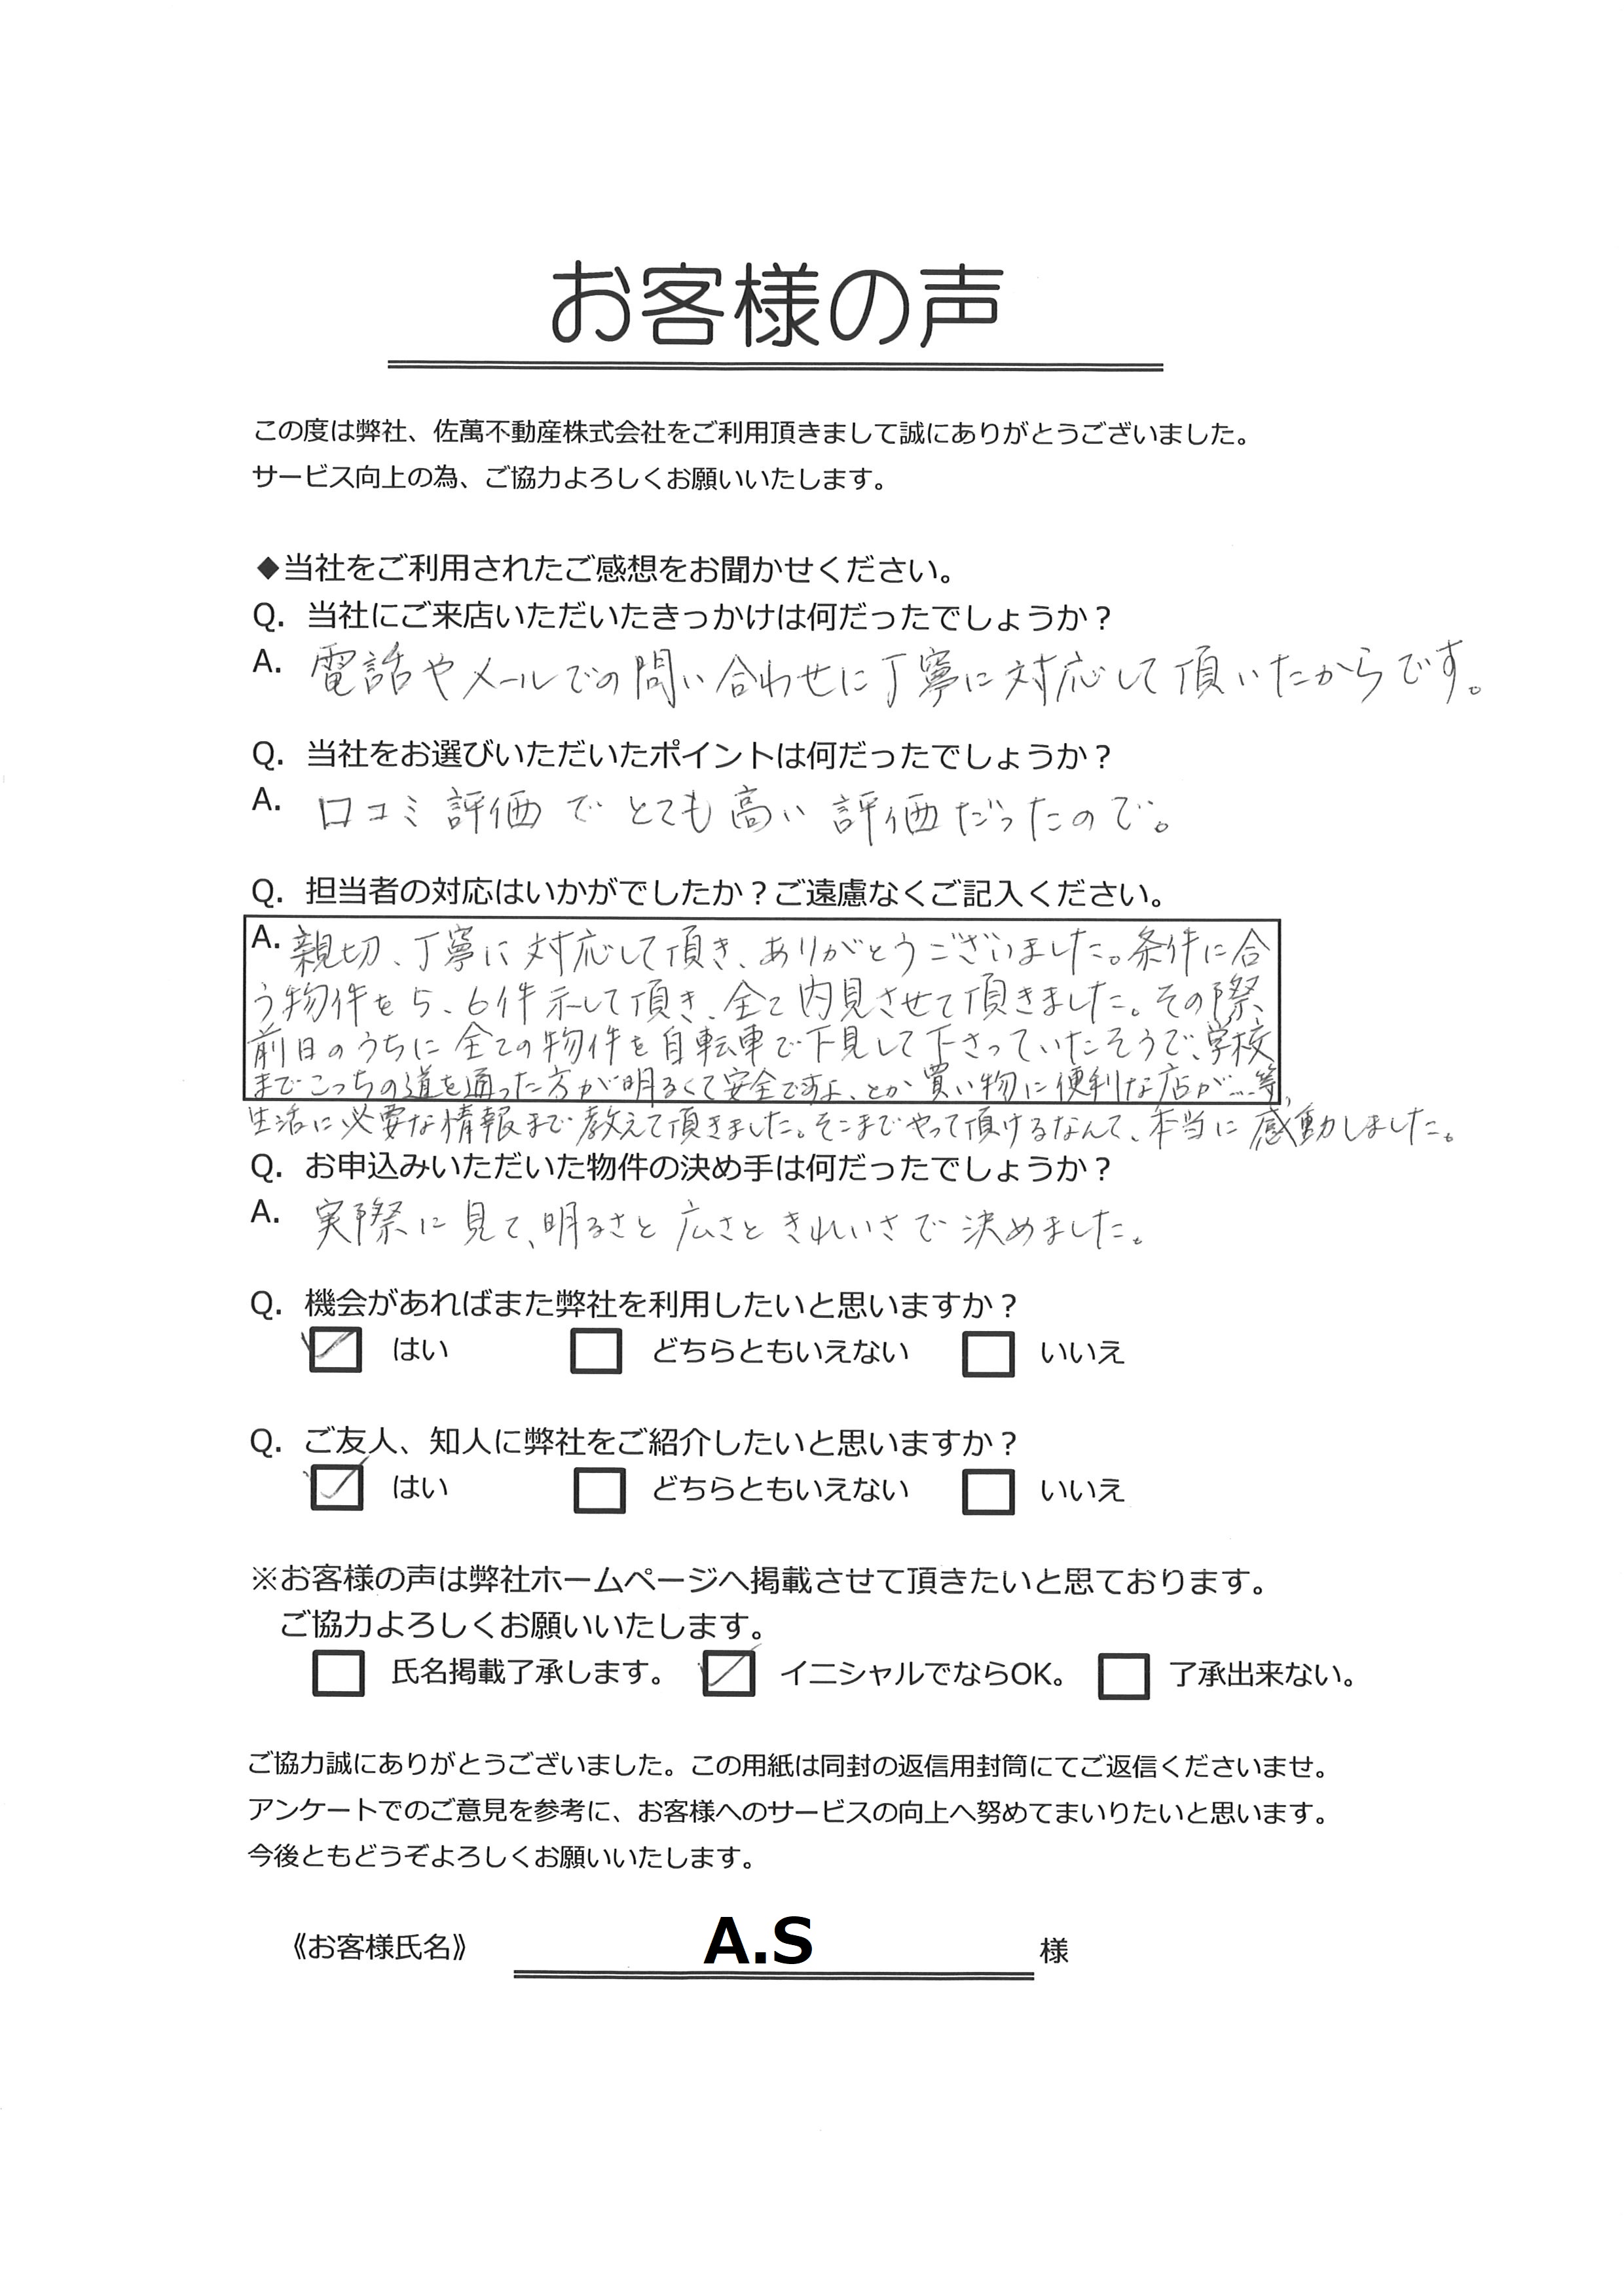 お客様の声
この度は弊社、佐萬不動産株式会社をご利用頂きまして誠にありがとうございました。
サービス向上の為、ご協力よろしくお願いいたします。
◆当社をご利用されたご感想をお聞かせください。
Q. 当社にご来店いただいたきっかけは何だったでしょうか?
A. 電話やメールでの問い合わせに丁寧に対応して頂いたからです。
Q. 当社をお選びいただいたポイントは何だったでしょうか?
A. 口コミ評価でとても高い評価だったので。
Q. 担当者の対応はいかがでしたか?ご遠慮なくご記入ください。
A. 親切、丁寧に対応して頂き、ありがとうございました。条件に合
う物件を5、6件示して頂き、全て内見させて頂きました。その際、
前日のうちに全ての物件を自転車で下見して下さっていたそうで、学校
までこっちの道を通った方が明るくて安全ですよ、とか買い物に便利な店が…等、
生活に必要な情報まで教えて頂きました。そこまでやって頂けるなんて、本当に感動しました。
Q. お申込みいただいた物件の決め手は何だったでしょうか?
A. 実際に見て、明るさと広さときれいさで決めました。
Q. 機会があればまた弊社を利用したいと思いますか?
はい どちらともいえない いいえ
Q. ご友人、知人に弊社をご紹介したいと思いますか?
はい どちらともいえない いいえ
※お客様の声は弊社ホームページへ掲載させて頂きたいと思ております。
ご協力よろしくお願いいたします。
氏名掲載了承します。 イニシャルでならOK。 了承出来ない。
ご協力誠にありがとうございました。この用紙は同封の返信用封筒にてご返信くださいませ。
アンケートでのご意見を参考に、お客様へのサービスの向上へ努めてまいりたいと思います。
今後ともどうぞよろしくお願いいたします。
《お客様氏名》 A.S 様